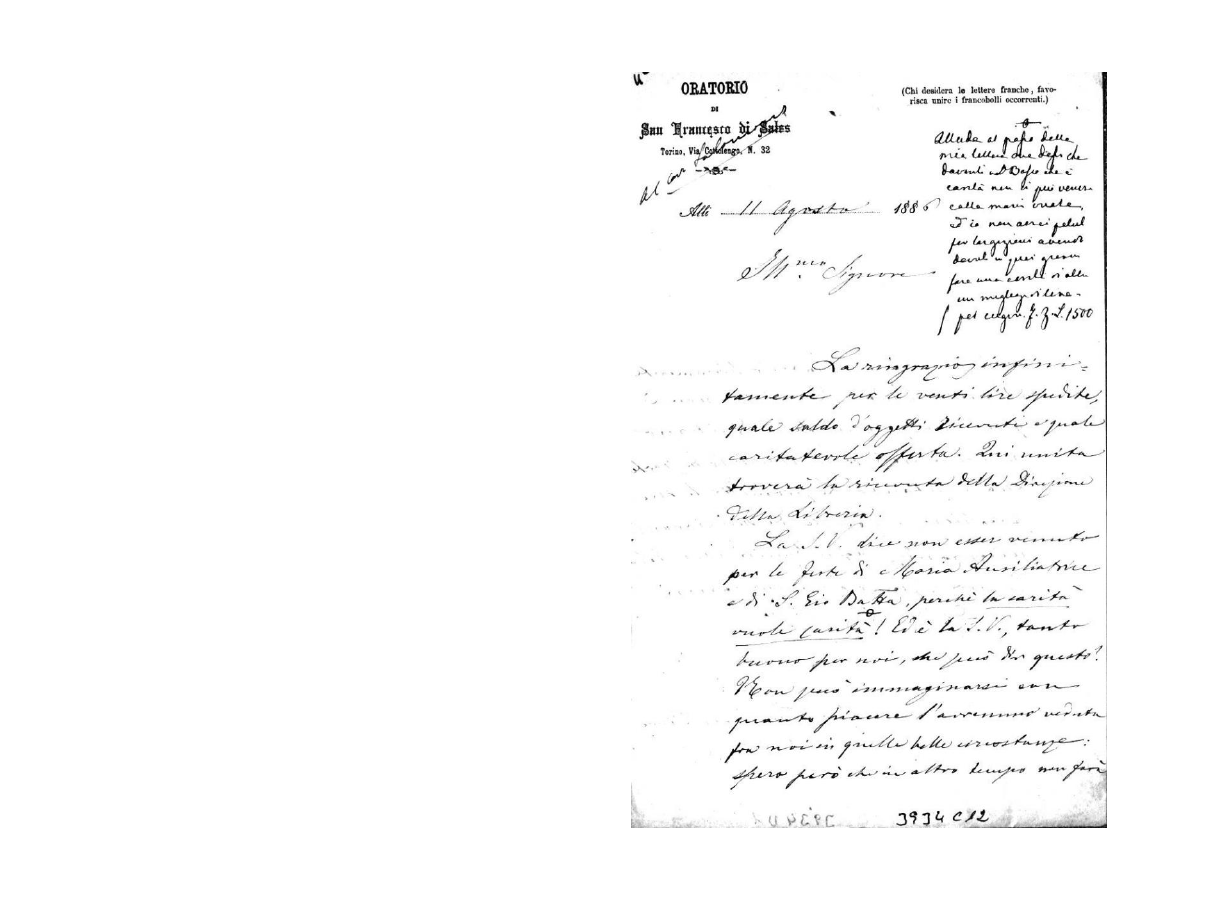 ORATORIO
DI
San Francesco di Sales
Torino, Via Cottolengo, N. 32
(Chi desidera le lettere franche, favo-
risca unire i francobolli occorrenti.)
al cav
Alli 11 Agosto 1886
Allude al della
mia lettera ove dissi che
davanti a D Bosco che è
carità non si può venire
colle mani vuote,
ed io non avrei
per
davanti
fare una
un
per L. 1500
Ill.mo Signore
La ringrazio infini-
tamente per le venti lire spedite,
quale saldo d'oggetti ricevuti e quale
caritatevole offerta. Qui unita
troverà la ricevuta della Direzione
della Libreria.
La S.V. dice non esser venuto
per le feste di Maria Ausiliatrice
e di S. Gio Batta, perchè la carità
vuole carità! Ed è la S.V., tanto
buono per noi, che può dir questo!
Non può immaginarsi con
quanto piacere l'avremmo veduta
fra noi in quelle belle circostanze:
spero però che in altro tempo non farà
3934 C12